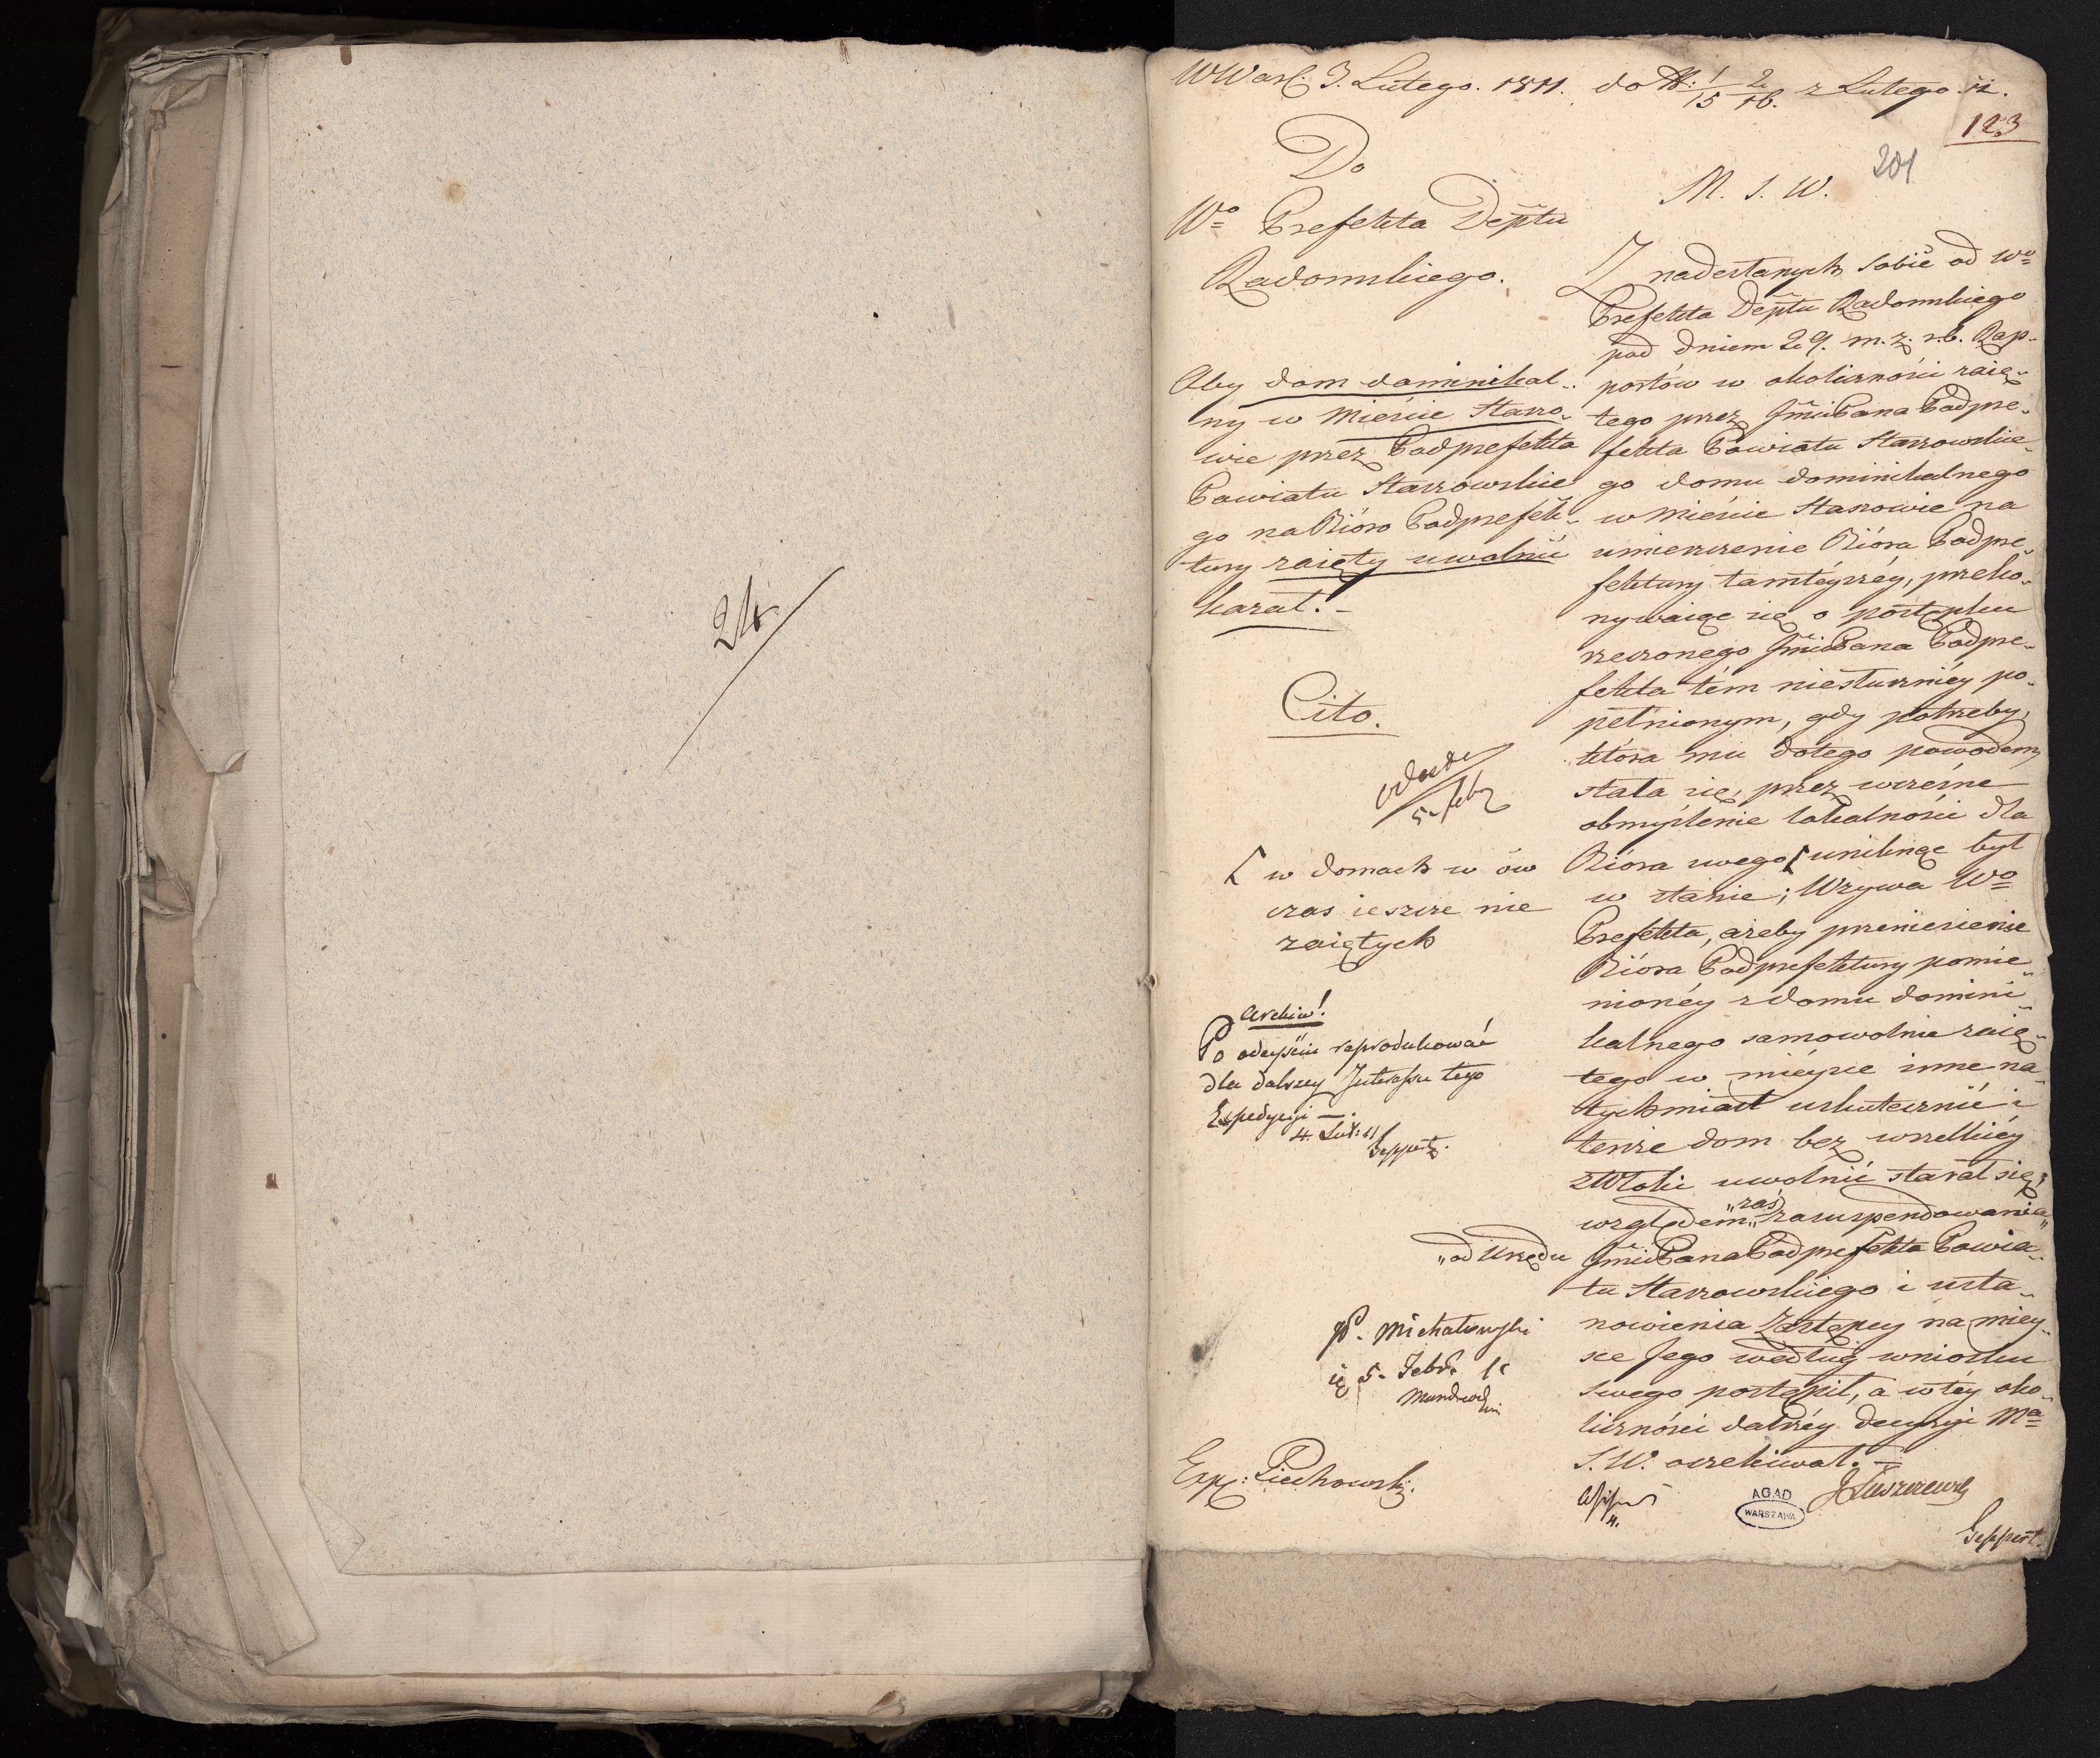 24.
W Wars: 3. Lutego. 1811. do N: 1/15 2/16. z Lutego 11.
123
201
Do
Wo Prefekta Deptu
Radomskiego.
Aby dom dominikal-
ny w Mieście Staszo-
wie przez Podprefekta
Powiatu Staszowskie
go na Bióro Podprefek-
tury zaięty uwolnić
kazał.-
Cito.
5. feb
[ w domach w ów
czas ieszcze nie
zaiętych
Archiw!
Po odeyściu reprodukować
dla dalszey Interessu tego
Expedycyi —
4. Lut: 11
Geppert.
M. S. W.
Z nadesłanych sobie od Wo
Prefekta Deptu Radomskiego
pod dniem 29. m. z. r. b. Rap-
portów w okoliczności zaię-
tego przez JmciPana Podpre-
fekta Powiatu Staszowskie-
go domu dominikalnego
w Mieście Staszowie na
umieszczenie Bióra Podpre-
fektury tamtéyszéy, przeko-
nywaiąc się o postępku
rzeczonego JmciPana Podpre-
fekta tém niesłuszniéy po-
pełnionym, gdy potrzeby,
która mu dotego powodem
stała się, przez wcześne
obmyślenie lokalności dla
Bióra swego [ uniknąć był
w stanie; Wzywa Wo
Prefekta, ażeby przeniesienie
Bióra Podprefektury pomie-
nionéy z domu domini-
kalnego samowolnie zaię-
tego w mieysce inne na-
tychmiast uskutecznić i
tenże dom bez wszelkiéy
zwłoki uwolnić starał się,
względem „zaś„ zasuspendowania„
„od Urzędu JmciPana Podprefekta Powia-
tu Staszowskiego i usta-
nowienia Zastępcy na miey-
sce Jego według wniosku
swego postąpił, a w téy oko-
liczności dalszéy decyzyi Ma
S. W. oczekiwał.—
Michałowski
5. Febr. 11
Exp: Piechowski.
AGAD
WARSZAWA
JŁuszczewski
Geppert.